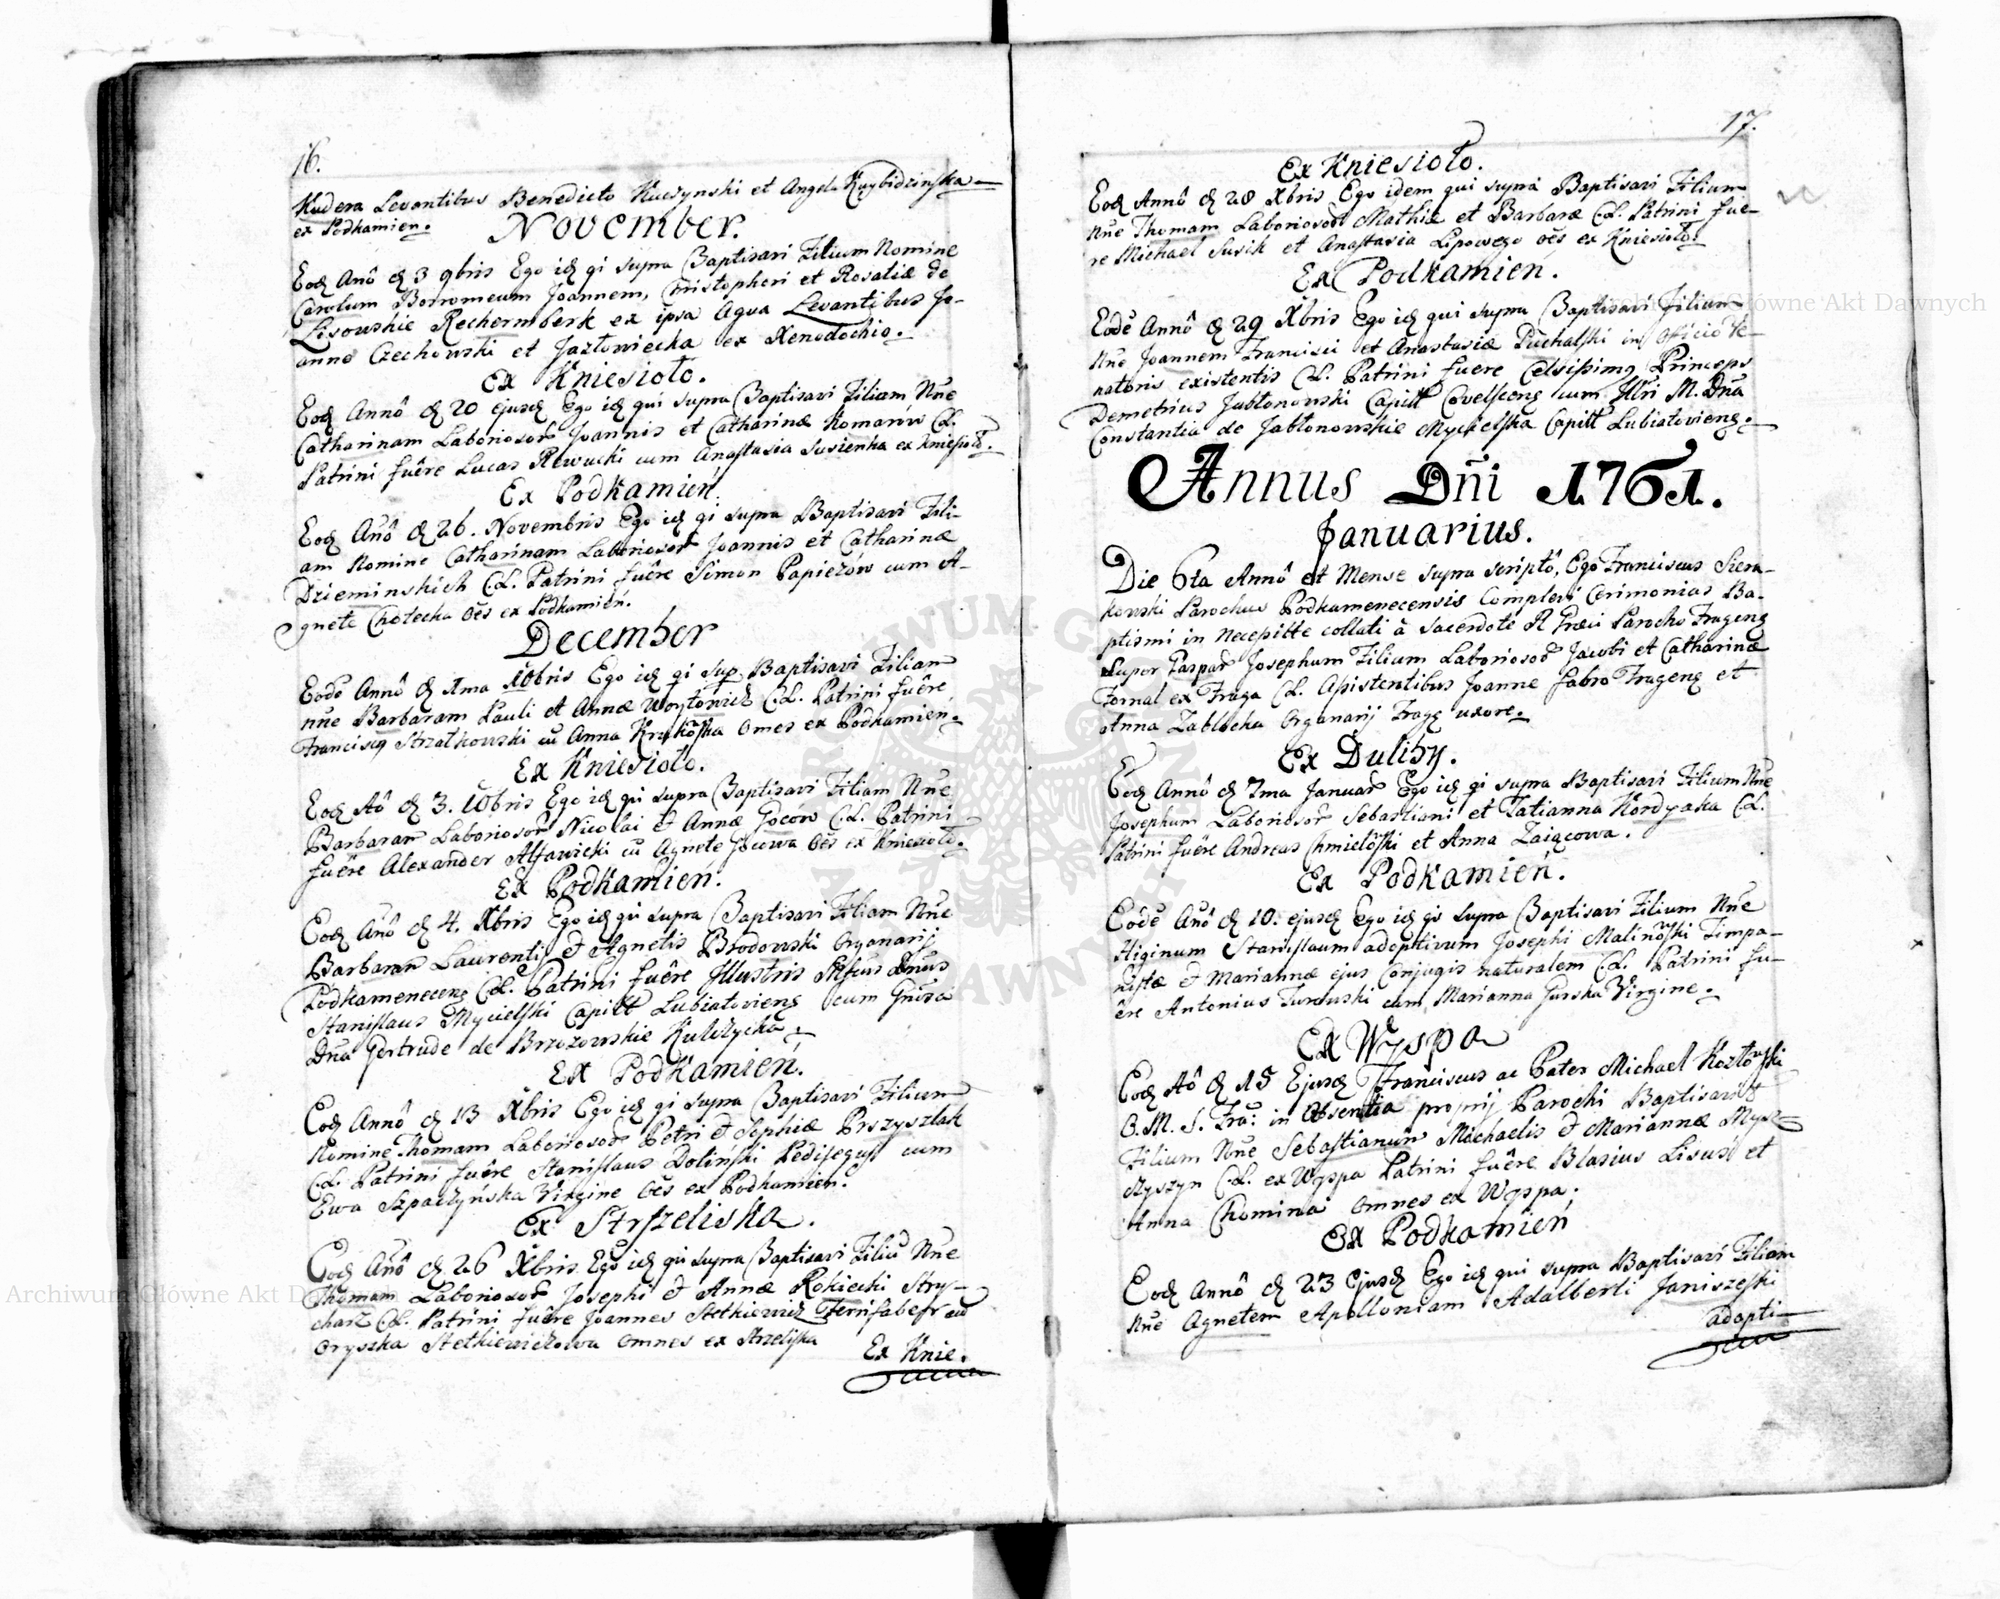 16.
Kudera Levantibus Benedicto Kuczynski et Angela
ex Podkamien.
November.
Eod Anô d 3 9bris Ego id qi supra Baptisavi Filium Nomine
Carolum Borromeum Joannem, Christopheri et Rosaliæ de
Lisowskie Rechermberk ex ipsa Aqua Levantibus Jo-
anne Czechowski et Jazłowiecka ex Xenodochio.
Ex Kniesioło.
Eod Annô d 20 ejusd Ego id qui supra Baptisavi Filiam Nne
Catharinam Laboriosor Joannis et Catharinæ Komarów C.L.
Patrini fuêre Lucas Rewucki cum Anastasia Susienka ex Kniesioło.
Ex Podkamień.
Eod Anô d 26. Novembris Ego id qi supra Baptisavi Fili-
am Nomine Catharinam Laboriosor Joannis et Catharinæ
Dzieminskich C.L. Patrini fuêre Simon Papieżów cum A-
gnete Chotecka oês ex Podkamień.
December
Eode Annô d 1ma Xbris Ego id qi sup Baptisavi Filiam
nne Barbaram Pauli et Annæ Woytowicz C.L. Patrini fuêre
Franciscq Strzałkowski cu Anna omes ex Podkamień.
Ex Kniesioło.
Eod Aô d 3. 10bris Ego id qui supra Baptisavi Filiam Nne
Barbaram Laboriosor Nicolai & Annæ Gocow C.L. Patrini
fuêre Alexander cu Agnete Gocowa oês ex Kniesioło.
Ex Podkamień.
Eod Anô d 4. Xbris Ego id qui supra Baptisavi Filiam Nne
Barbaram Laurentij & Agnetis Brodowski Organarij
Podkameneceng C.L. Patrini fuêre Illustris Dnus
Stanislaus Mycielski Capitt Lubiatovieng cum
Dna Gertrude de Brzozowskie
Ex Podkamień.
Eod Annô d 13 Xbris Ego id qi supra Baptisavi Filium
Nomine Thomam Laboriosor Petri & Sophiæ Przyszlak
C.L. Patrini fuêre Stanislaus Doliński cum
Ewa Szpaczyńska Virgine oês ex Podkamień.
Ex Strzeliska.
Eod Anô d 26 Xbris Ego id qui supra Baptisavi Filiu Nne
Thomam Laboriosor Josephi & Annæ Rokiecki Stry-
charz C.L. Patrini fuêre Joannes Stetkiewicz cu
Oryszka Stetkiewiczowa omnes ex Strzeliska
Ex Knie.
17.
Ex Kniesioło.
Eod Annô d 28 Xbris Ego idem qui supra Baptisavi Filium
nne Thomam Laboriosor Mathiæ et Barbaræ C.L. Patrini fue-
re Michael Susik et Anastasia Lipowego oês ex Kniesioło.
Ex Podkamień.
Eode Annô d 29 Xbris Ego id qui supra Baptisavi Filium
nne Joannem Francisci et Anastasiæ Puchalski in officio Ve-
natoris existentis C.L. Patrini fuere Celsissimq Princeps
Demetrius Jabłonowski Capitt cum Illri M. Dna
Constantia de Jabłonowskie Mycielska Capitt Lubiatovieng.
Annus Dñi 1761.
Januarius.
Die 6ta Annô et Mense supra scriptô, Ego Franciscus Siera-
kowski Parochus Podkamenecensis Complevi Cerimonias Ba-
ptismi in necessitte collati à Sacerdote R Græci Parocho Frageng
super Gaspar Josephum Filium Laboriosor Jacobi et Catharinæ
Fornal ex Fraga C.L. Assistentibus Joanne fabro Frageng et
Anna Zablocka Organarij Frage uxore.
Ex Duliby.
Eod Annô d 7ma Januar Ego id qi supra Baptisavi Filium Nne
Josephum Laboriosor Sebastiani et Tatianna Kordyaka C.L.
Patrini fuêre Andreas Chmielowski et Anna Zaiącowa.
Ex Podkamień.
Eode Anô d 10. ejusd Ego id qi supra Baptisavi Filium Nne
Higinum Stanislaum adoptivum Josephi Malinowski Timpa-
nistæ & Mariannæ ejus Conjugis naturalem C.L. Patrini fu-
êre Antonius Turowski cum Marianna Gurska Virgine.
Ex Wyspa
Eod Aô d 15 Ejusd Franciscus ac Pater Michael Kozłowski
O.M.S. Fra: in absentia proprij Parochi Baptisavit
Filium Nne Sebastianum Michaelis & Mariannæ Mysz-
czyszyn C.L. ex Wyspa Patrini fuêre Blasius Lisus et
Anna Chomina omnes ex Wyspa.
Ex Podkamień
Eod Annô d 23 Ejusd Ego id qui supra Baptisavi Filiam
nne Agnetem Apolloniam Adalberti Janiszeski
adopti-
Archiwum Główne Akt Dawnych
Archiwum Główne Akt Dawnych
ARCHIWUM GŁÓWNE AKT DAWNYCH